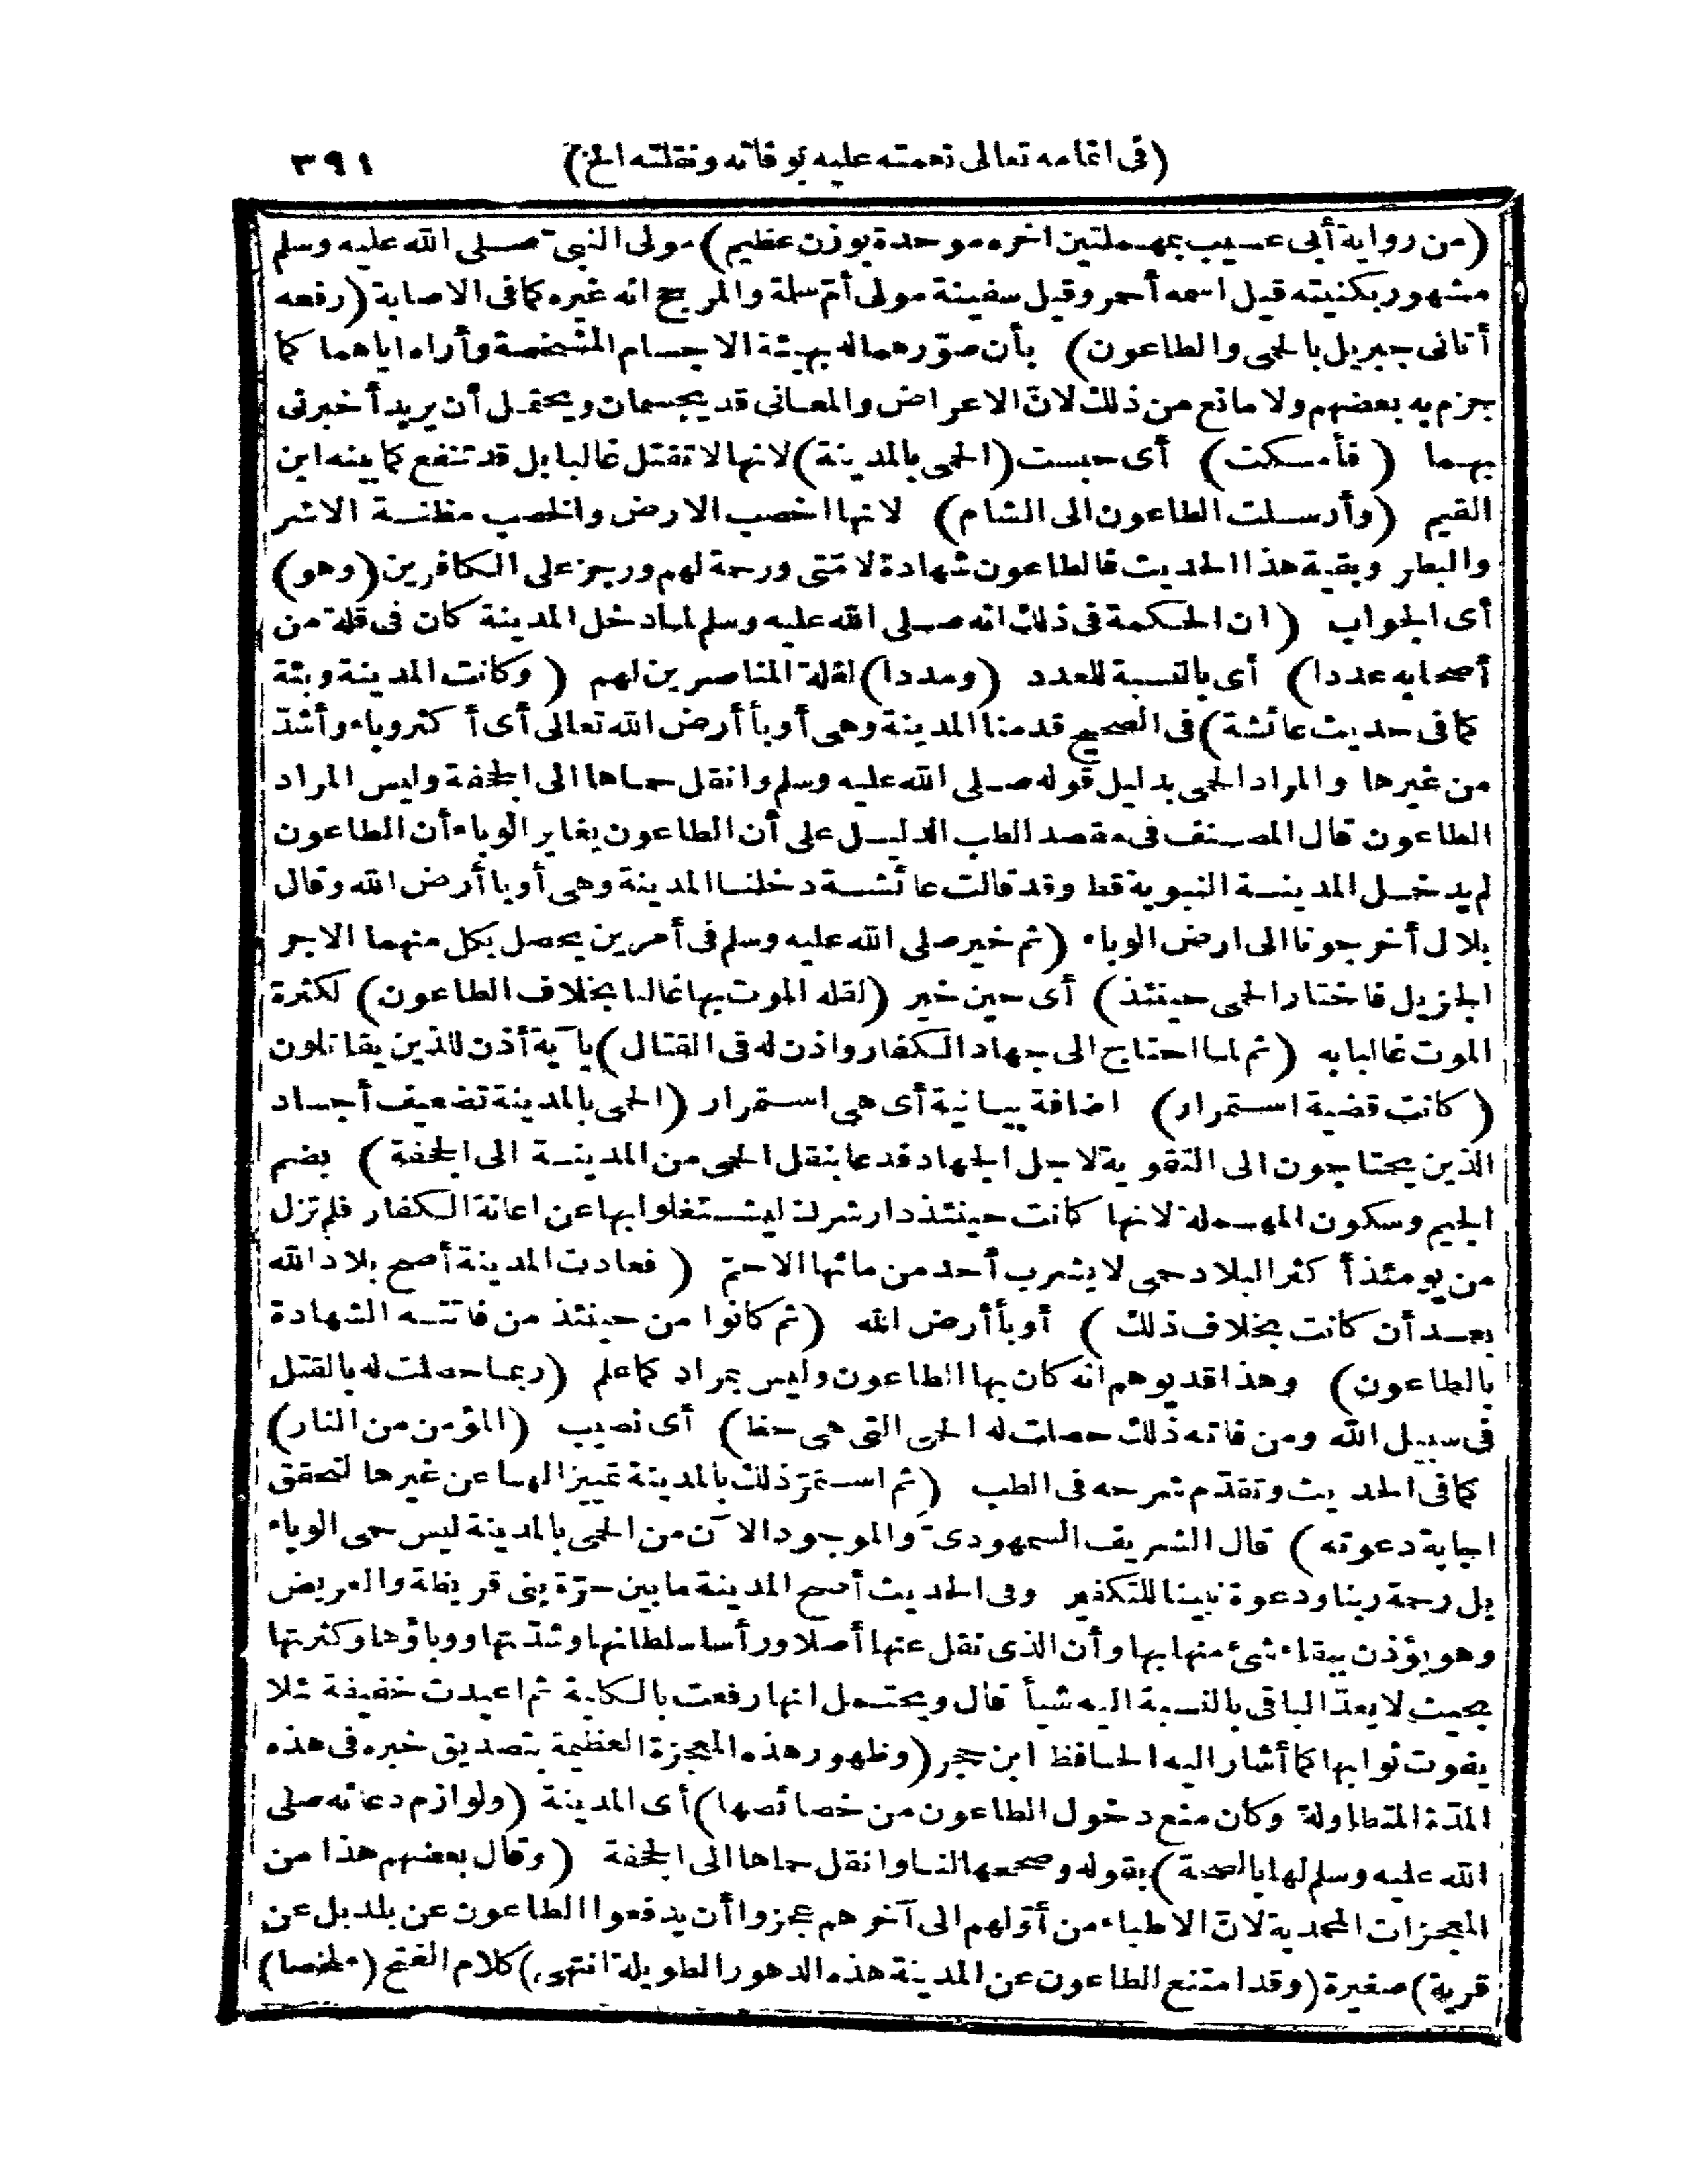 (فى اتمامه تعالى نعمته عليه بوفاته ونقلته الخ) ٣٩١
(من رواية أبى عسيب بمهملتين اخره موحدة بوزن عظيم) مولى النبىّ صلى الله عليه وسلم
مشهور بكنيته قيل اسمه أحمر وقيل سفينة مولى أمّ سلة والمرجح انه غيره كما فى الاصابة (رفعه
أتانى جبريل بالحمى والطاعون) بأن صوّرهما له بهيئة الاجسام المشخصة وأراه اياهما كما
جزم به بعضهم ولا مانع من ذلك لانّ الاعراض والمعانى قد يجسمان ويحتمل أن يريد أخبرنى
بهما (فأمسكت) أى حبست (الحمى بالمدينة) لانها لا تقتل غالبا بل قد تنفع كما بينه ابن
القيم (وأرسلت الطاعون الى الشام) لانها اخصب الارض والخصب مظنة الاشر
والبطر وبقية هذا الحديث فالطاعون شهادة لامّتى ورحمة لهم ورجز على الكافرين (وهو)
أى الجواب (ان الحكمة فى ذلك انه صلى الله عليه وسلم لما دخل المدينة كان فى قلة من
أصحابه عددا) أى بالنسبة للعدد (ومددا) لقلة المناصرين لهم (وكانت المدينة وبئة
كما فى حديث عائشة) فى الصحيح قدمنا المدينة وهى أوبأ أرض الله تعالى أى أكثر وباء وأشدّ
من غيرها والمراد الحمى بدليل قوله صلى الله عليه وسلم وانقل حماها الى الجحفة وليس المراد
الطاعون قال المصنف فى مقصد الطب الدليل على أن الطاعون يغاير الوباء أن الطاعون
لم يدخل المدينة النبوية قط وقد قالت عائشة دخلنا المدينة وهى أوبا أرض الله وقال
بلال أخرجونا الى ارض الوباء (ثم خير صلى الله عليه وسلم فى أمرين يحصل بكل منهما الاجر
الجزيل فاختار الحمى حينئذ) أى حين خير (لقله الموت بها غالبا بخلاف الطاعون) لكثرة
الموت غالبا به (ثم لما احتاج الى جهاد الكفار واذن له فى القتال) بآية أذن للذين يقاتلون
(كانت قضية استمرار) اضافة بيانية أى هى استمرار (الحمى بالمدينة تضعيف أجساد
الذين يحتاجون الى التقوية لاجل الجهاد فدعا بنقل الحمى من المدينة الى الجحفة) بضم
الجيم وسكون المهملة لانها كانت حينئذ دار شرك ليشتغلوا بها عن اعانة الكفار فلم تزل
من يومئذ أكثر البلاد حمى لا يشرب أحد من مائها الا حمّ (فعادت المدينة أصح بلاد الله
بعد أن كانت بخلاف ذلك) أوبأ أرض الله (ثم كانوا من حينئذ من فاتته الشهادة
بالطاعون) وهذا قد يوهم انه كان بها الطاعون وليس بمراد كما علم (ربما حصلت له بالقتل
فى سبيل الله ومن فاته ذلك حصلت له الحمى التى هى حظ) أى نصيب (المؤمن من النار)
كما فى الحديث وتقدّم شرحه فى الطب (ثم استمرّ ذلك بالمدينة تمييزا لها عن غيرها لتحقق
اجابة دعوته) قال الشريف السمهودىّ والموجود الآن من الحمى بالمدينة ليس حمى الوباء
بل رحمة ربنا ودعوة نبينا للتكفير وفى الحديث أصح المدينة ما بين حرّة بنى قريظة والعريض
وهو يؤذن ببقاء شئ منها بها وأن الذى نقل عنها أصلا ورأسا سلطانها وشدّتها ووباؤها وكثرتها
بحيث لا يعدّ الباقى بالنسبة اليه شيأ قال ويحتمل انها رفعت بالكلية ثم اعيدت خفيفة لئلا
يفوت ثوابها كما أشار اليه الحافظ ابن حجر (وظهور هذه المعجزة العظيمة بتصديق خبره فى هذه
المدّة المتطاولة وكان منع دخول الطاعون من خصائصها) أى المدينة (ولوازم دعائه صلى
الله عليه وسلم لها بالصحة) بقوله وصححها لنا وانقل حماها الى الجحفة (وقال بعضهم هذا من
المعجزات المحمدية لانّ الاطباء من أوّلهم الى آخرهم عجزوا أن يدفعوا الطاعون عن بلد بل عن
قرية) صغيرة (وقد امتنع الطاعون عن المدينة هذه الدهور الطويلة انتهى) كلام الفتح (ملخصا)